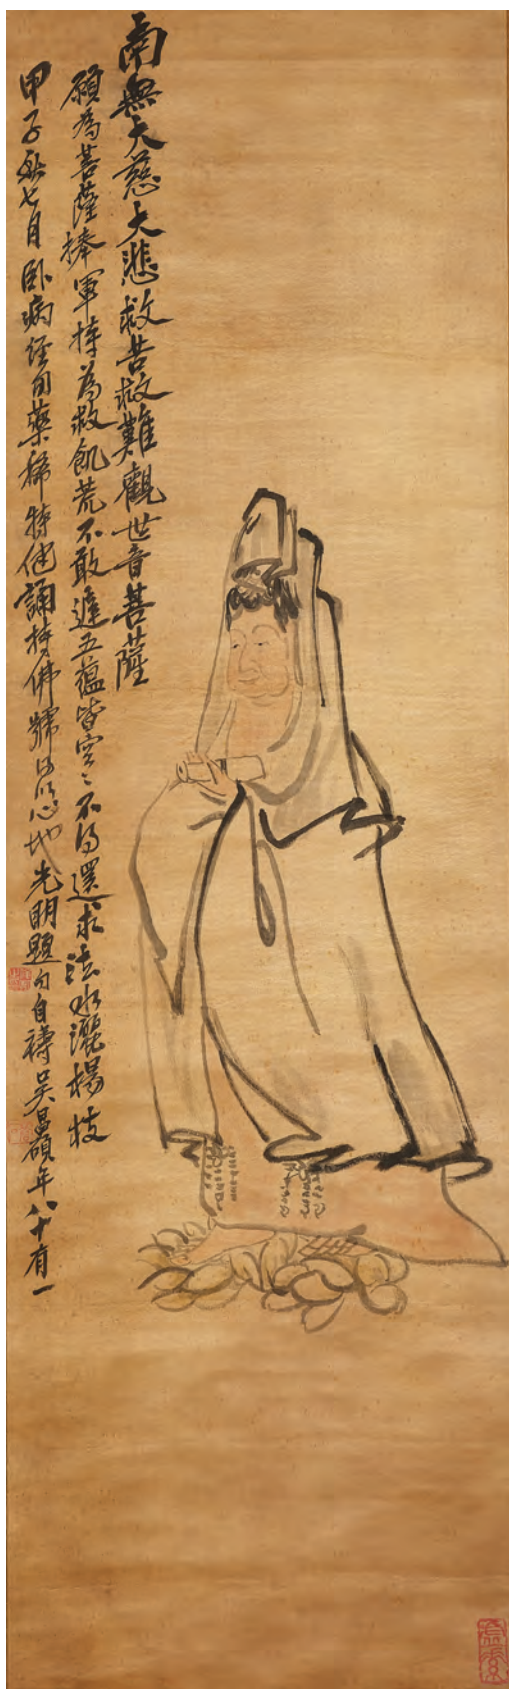 南無大慈大悲救苦救難觀世音菩薩
願為菩薩捧軍持為救飢荒不敢遲五蘊皆空々不得還求法水灑楊枝
甲子秋七月臥病經旬藥稀特健誦持佛號得以心地光明題句自禱吳昌碩年八十有一